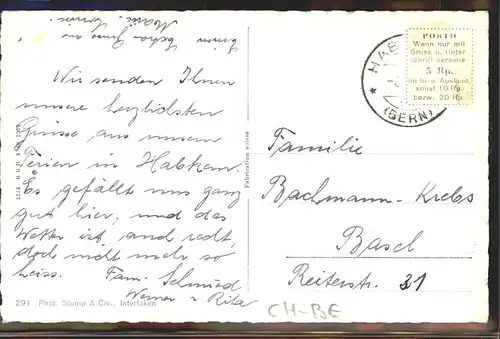 Einen Extra Gruss an
Wir senden Ihnen
unsere herzlichsten
Grüsse aus unsern
Ferien in Habkern.
Es gefällt uns ganz
gut hier, und das
Wetter ist auch recht,
doch nicht mehr so
heiss. Fam. Schmied
Werner & Rita
291 Phot. Stump & Cie., Interlaken
Fabrication suisse
HAB
(BERN)
PORTO
Wenn nur mit
Gruss u. Unter
schrift versehen
5 Rp.
im In- u. Ausland,
sonst 10 Rp.
bezw. 20 Rp.
Familie
Bachmann-Krebs
Basel
Reiterstr. 31
CH-BE